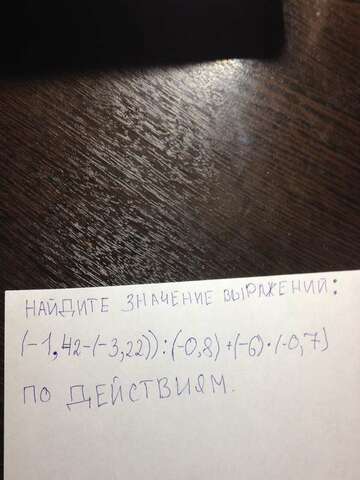 НАЙДИТЕ ЗНАЧЕНИЕ ВЫРАЖЕНИЙ:
(-1,42-(-3,22)):(-0,8)+(-6)·(-0,7)
ПО ДЕЙСТВИЯМ.